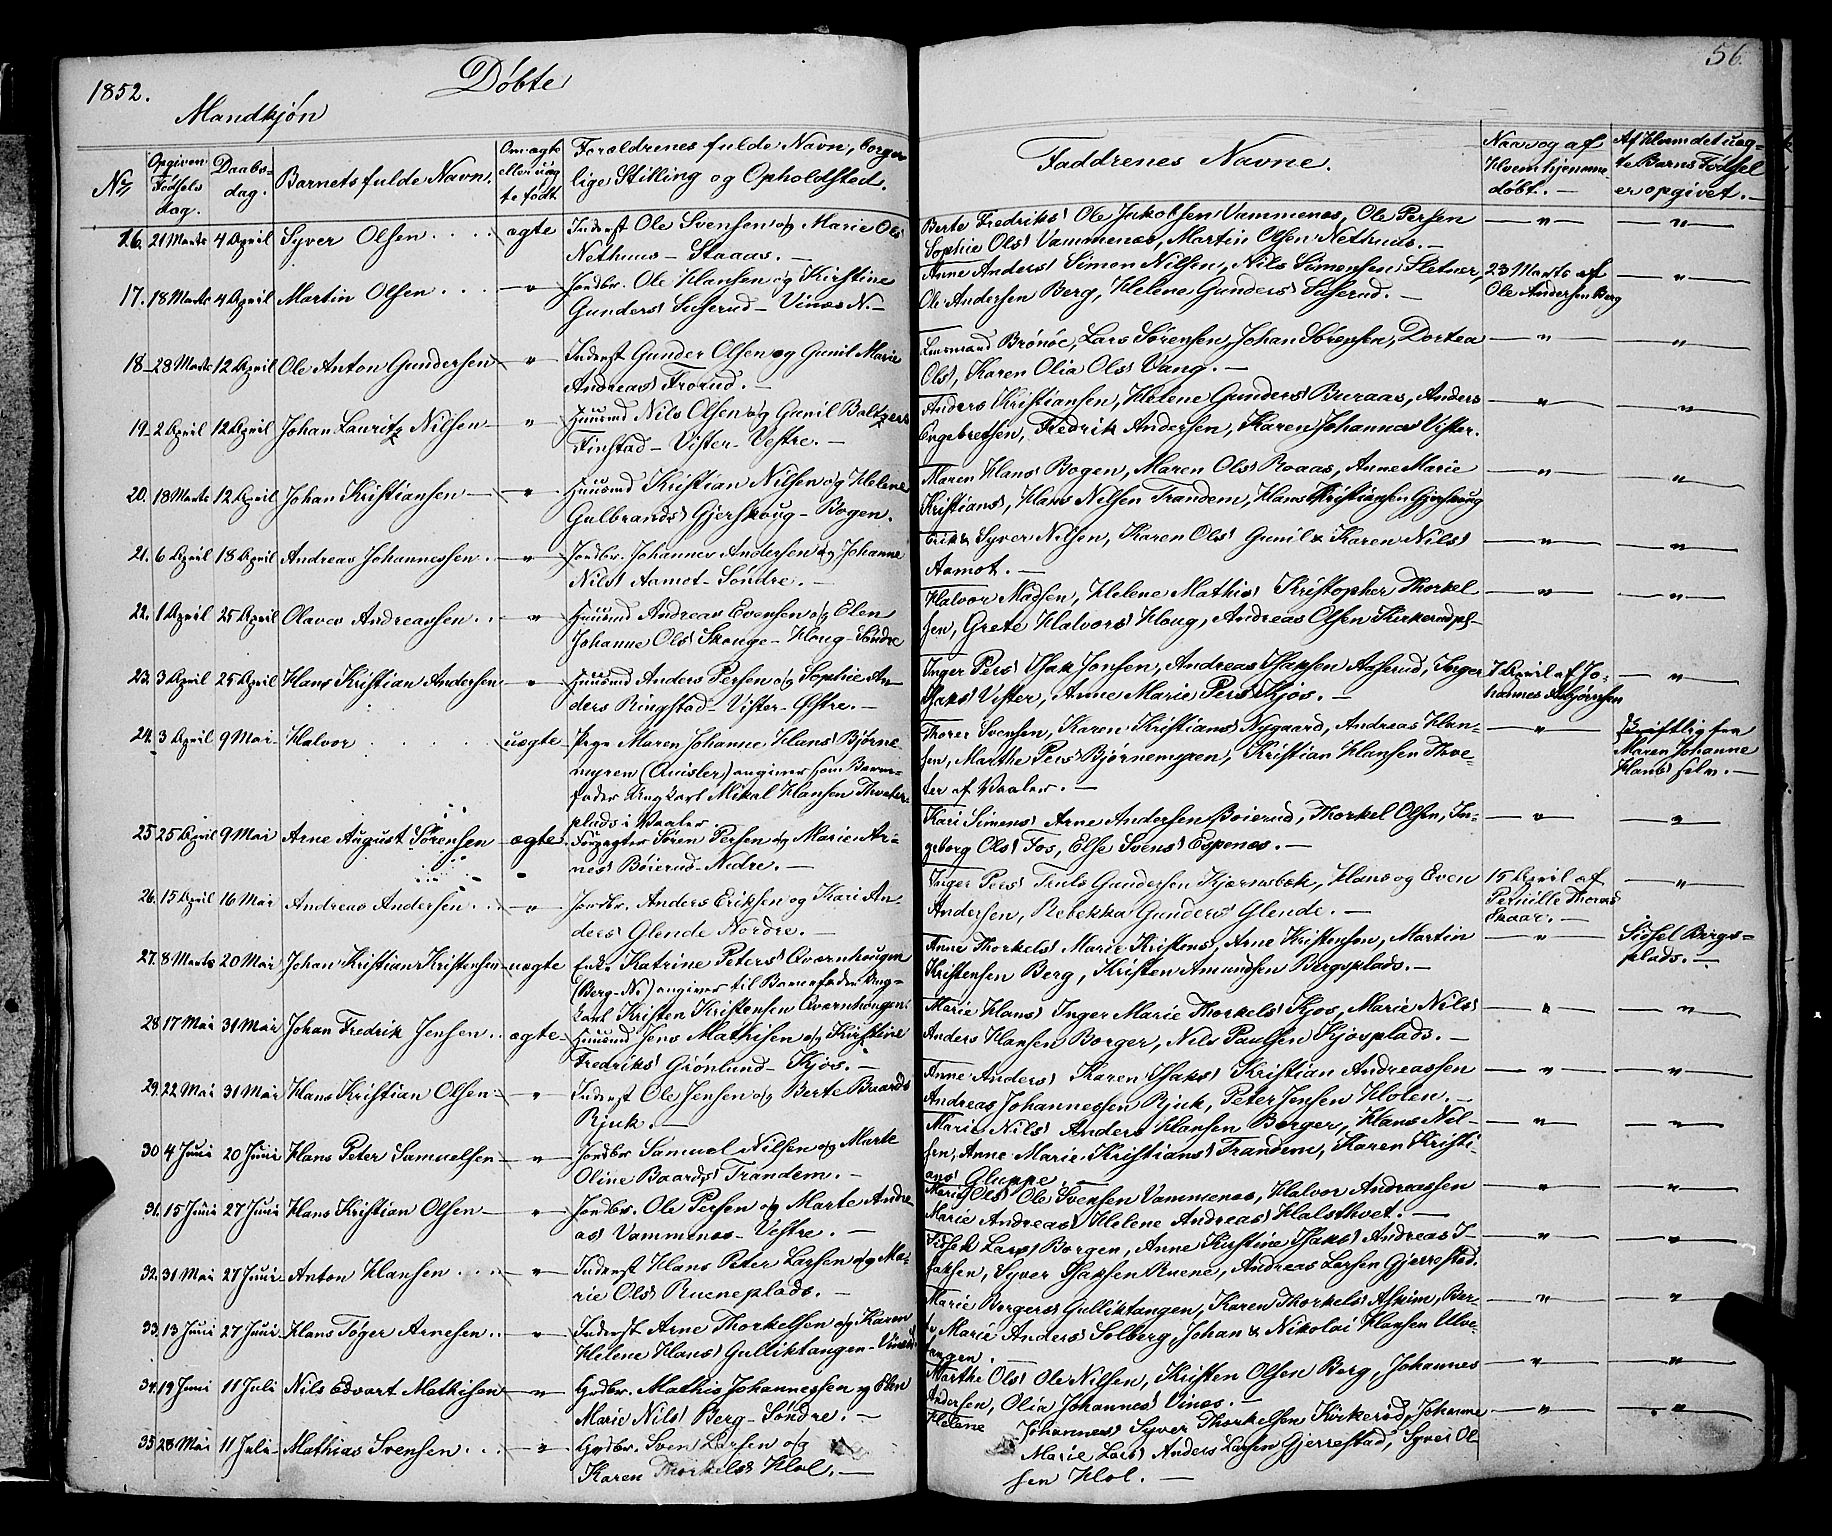 1852. Døbte 56.
Mandkjøn
No
Opgiven Fødselsdag.
Daabsdag.
Barnets fulde Navn.
Om ægte eller uægte født
Forældrenes fulde Navn, borgerlige Stilling og Opholdsted.
Faddrenes Navne.
Naar og af Hvem hjemmedøbt. —
Af Hvem det uægte Barns Fødsel er opgivet. —
16. 21 Marts 4 April Syver Olsen . . . ægte Inderst Ole Svensen og Marie Ols Berte Fredriks Ole Jakobsen Vammenæs, Ole Persen — " — — " —
Nethuus — Staaas. — Sophie Ols Vammenæs, Martin Olsen Nethuus. —
17. 18 Marts 4 April Martin Olsen . . . — " — Jordbr. Ole Hansen og Kirstine Anne Anders Simon Nilsen, Nils Simensen Sletner, 23 Marts af — " —
Gunders Suserud — Vinæs N. — Ole Andersen Berg, Helene Gunders Suserud. — Ole Andersen Berg
18 — 28 Marts 12 April Ole Anton Gundersen — " — Inderst Gunder Olsen og Gunil Marie Brønøe, Lars Sørensen, Johan Sørensen, Dortea — " — — " —
Andreas Frorud. — Ols, Karen Olia Ols Vang. —
19 — 2 April 12 April Johan Lauritz Nilsen — " — Huusmd Nils Olsen og Gunil Baltzers Anders Kristiansen, Helene Gunders Buraas, Anders — " — — " —
Finstad — Vister — Vestre. — Engebretsen, Fredrik Andersen, Karen Johannes Vister.
20. 18 Marts 12 April Johan Kristiansen — " — Huusmd Kristian Nilsen og Helene Maren Hans Bogen, Maren Ols Roaas, Anne Marie — " — — " —
Gulbrands Gjerskoug — Bogen. Kristians, Hans Nilsen Trandem, Hans Kristiansen Gjerskoug
21. 6 April 18 April Andreas Johannessen . — " — Jordbr. Johannes Andersen og Johanne Erik & Syver Nilsen, Karen Ols Gunil & Karen Nils — " — — " —
Nils Aamot — Søndre. — Aamot. —
22. 1 April 25 April Olaves Andreassen . . — " — Huusmd Andreas Evensen og Elen Halvor Madsen, Helene Mathis Kristopher Thorkel — " — — " —
Johanne Ols Skouge — Houg — Søndre sen, Grete Halvors Houg, Andreas Olsen Kirkerudpl —
23. 3 April 25 April Hans Kristian Andersen " Huusmd Anders Persen og Sophie An- Inger Pers Isak Jonsen, Andreas Isaksen Aaserud, Inger 7 April af Jo- — " —
ders Ringstad — Vister — Østre. — Isaks Vister, Anne Marie Pers Kjos. — hannes Asbjørnsen
24. 3 April 9 Mai Halvor . . . . uægte Pige Maren Johanne Hans Bjørne- Thorer Svensen, Karen Kristians Nygaard, Andreas Han- — " — Skriftlig fra
myren (Quisler) angiver som Barne- sen, Marthe Pers Bjørnemyren, Kristian Hansen Thve- Maren Johanne
fader Ungkarl Mikal Hansen Thveter- ter af Vaaler. — Hans selv. —
plads i Vaaler.
25 25 April 9 Mai Arne August Sørensen ægte Søren Persen og Marie Ar- Kari Simens Arne Andersen Bøierud, Thorkel Olsen, In- — " — — " —
nes Bøierud — Nedre. — geborg Ols Fos, Else Svens Espenæs. —
26. 15 April 16 Mai Andreas Andersen . . . — " — Jordbr. Anders Eriksen og Kari An- Inger Pers Truls Gundersen Kjærnsbek, Hans og Even 15 April af — " —
ders Glende Nordre. — Andersen, Rebekka Gunders Glende. — Pernille Thomas
Skaar. —
27. 8 Marts 20 Mai Johan Kristian Kristensen uægte Enke Katrine Peters Qværnhougen Anne Thorkels Marie Kristens, Arne Kristensen, Martin — " — Sidsel Bergs-
(Berg — N.) angiver til Barnefader Ung- Kristensen Berg, Kristen Amundsen Bergsplads. — plads. —
karl Kristen Kristensen Qvernhougen.
28. 17 Mai 31 Mai Johan Fredrik Jensen . . ægte — Huusmd Jens Mathisen og Kirstine Marie Hans Inger Marie Thorkels Kjos, Marie Nils — " — — " —
Fredriks Grønlund — Kjos. — Anders Hansen Borger, Nils Paulsen Kjosplads. —
29. 22 Mai 31 Mai Hans Kristian Olsen — " Inderst Ole Jensen og Berte Baards Anne Anders Karen Isaks Kristian Andreassen — " — — " —
Rjuk. — Andreas Johannessen Rjuk, Peter Jensen Holen. —
30 4 Juni 20 Juni Hans Peter Samuelsen — " — Jordbr. Samuel Nilsen og Marte Marie Nils Anders Hansen Borger, Hans Nil- — " — — " —
Oline Baards Trandem. — sen, Anne Marie Kristians Trandem, Karen Kristi-
ans Gluppe. —
31. 15 Juni 27 Juni Hans Kristian Olsen — " Jordbr. Ole Persen og Marte Andre Ols Ole Svensen Vammenæs, Halvor Andreassen — " — — " —
as Vammenæs — Vestre. — Marie Andreas Helene Andreas Halsthvet. —
32. 31 Mai 27 Juni Anton Hansen . . . — " — Inderst Hans Peter Larsen og Ma- Sidsel Lars Borgen, Anne Kirstine Isaks Andreas I- — " — — " —
rie Ols Rueneplads. — saksen, Syver Isaksen Ruene, Andreas Larsen Gjerrestad.
33. 13 Juni 27 Juni Hans Tøger Arnesen . . — " — Inderst Arne Thorkelsen og Karen Marie Borgers Gulliktangen, Karen Thorkels Askim, Ber- — " — — " —
Helene Hans Gulliktangen — Vinæs te Marie Anders Solberg, Johan & Nikolai Hansen Ulve-
tangen. —
34. 19 Juni 11 Juli Nils Edvart Mathisen — " — Grdbr. Mathis Johannessen og Elen Marthe Ols Ole Nilsen, Kristen Olsen Berg, Johannes — " — — " —
Marie Nils Berg — Søndre. — Andersen, Olia Johannes Vinæs. —
35. 28 Mai 11 Juli — Mathias Svensen . . . — " — Grdbr. Sven Larsen og Helene Johannes Syver Thorkelsen Kirkerud, Johanne — " — — " —
Karen Thorkels Hol. — Marie Lars Anders Larsen Gjerrestad, Syver Ol-
sen Hol. —